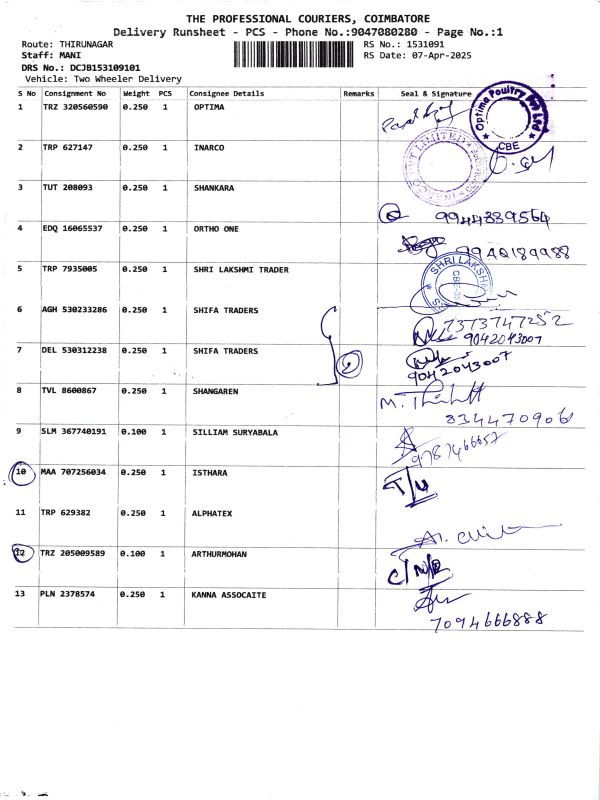 THE PROFESSIONAL COURIERS, COIMBATORE
Delivery Runsheet - PCS - Phone No.:9047080280 - Page No.:1
Route: THIRUNAGAR
Staff: MANI
DRS No.: DCJB153109101
Vehicle: Two Wheeler Delivery
RS No.: 1531091
RS Date: 07-Apr-2025
S No Consignment No Weight PCS Consignee Details Remarks Seal & Signature
1 TRZ 320560590 0.250 1 OPTIMA
Optima Poultry Pvt Ltd
CBE
2 TRP 627147 0.250 1 INARCO
LIMITED
3 TUT 208093 0.250 1 SHANKARA
9944839564
4 EDQ 16065537 0.250 1 ORTHO ONE
9940189988
5 TRP 7935005 0.250 1 SHRI LAKSHMI TRADER
SHRI LAKSHMI
CBE
6 AGH 530233286 0.250 1 SHIFA TRADERS
7373747252
9042043007
7 DEL 530312238 0.250 1 SHIFA TRADERS
2
9042043007
8 TVL 8600867 0.250 1 SHANGAREN
8344709061
9 SLM 367740191 0.100 1 SILLIAM SURYABALA
9787466657
10 MAA 707256034 0.250 1 ISTHARA
11 TRP 629382 0.250 1 ALPHATEX
12 TRZ 205009589 0.100 1 ARTHURMOHAN
13 PLN 2378574 0.250 1 KANNA ASSOCAITE
7094666888